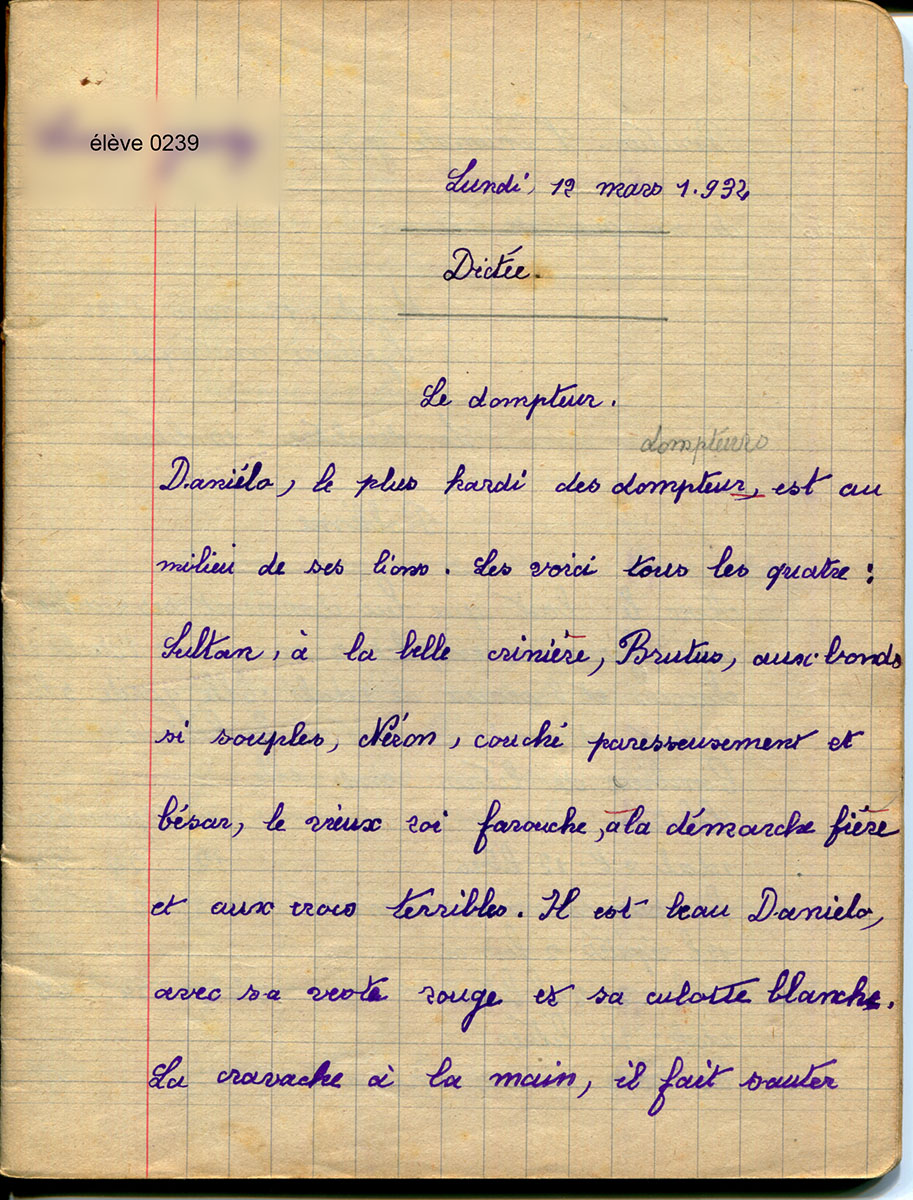 élève 0239
Lundi, 12 mars 1.934
Dictée.
Le dompteur.
dompteurs
Daniélo, le plus hardi des dompteur, est au
milieu de ses lions. Les voici tous les quatre :
Sultan, à la belle crinière, Brutus, aux bonds
si souples, Néron, couché paresseusement et
César, le vieux roi farouche, à la démarche fière
et aux crocs terribles. Il est beau Daniélo,
avec sa veste rouge et sa culotte blanche.
La cravache à la main, il fait sauter